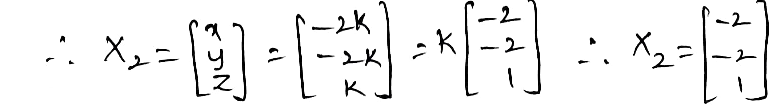 ∴ X₂ = [x y z] = [-2K -2K K] = K [-2 -2 1] ∴ X₂ = [-2 -2 1]